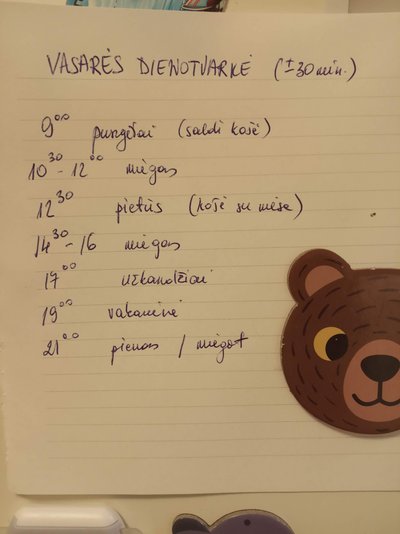 VASARĖS DIENOTVARKĖ (±30 min.)
9⁰⁰ pusryčiai (saldi košė)
10³⁰ - 12⁰⁰ miegas
12³⁰ pietūs (košė su mėsa)
14³⁰ - 16 miegas
17⁰⁰ užkandžiai
19⁰⁰ vakarienė
21⁰⁰ pienas / miegot